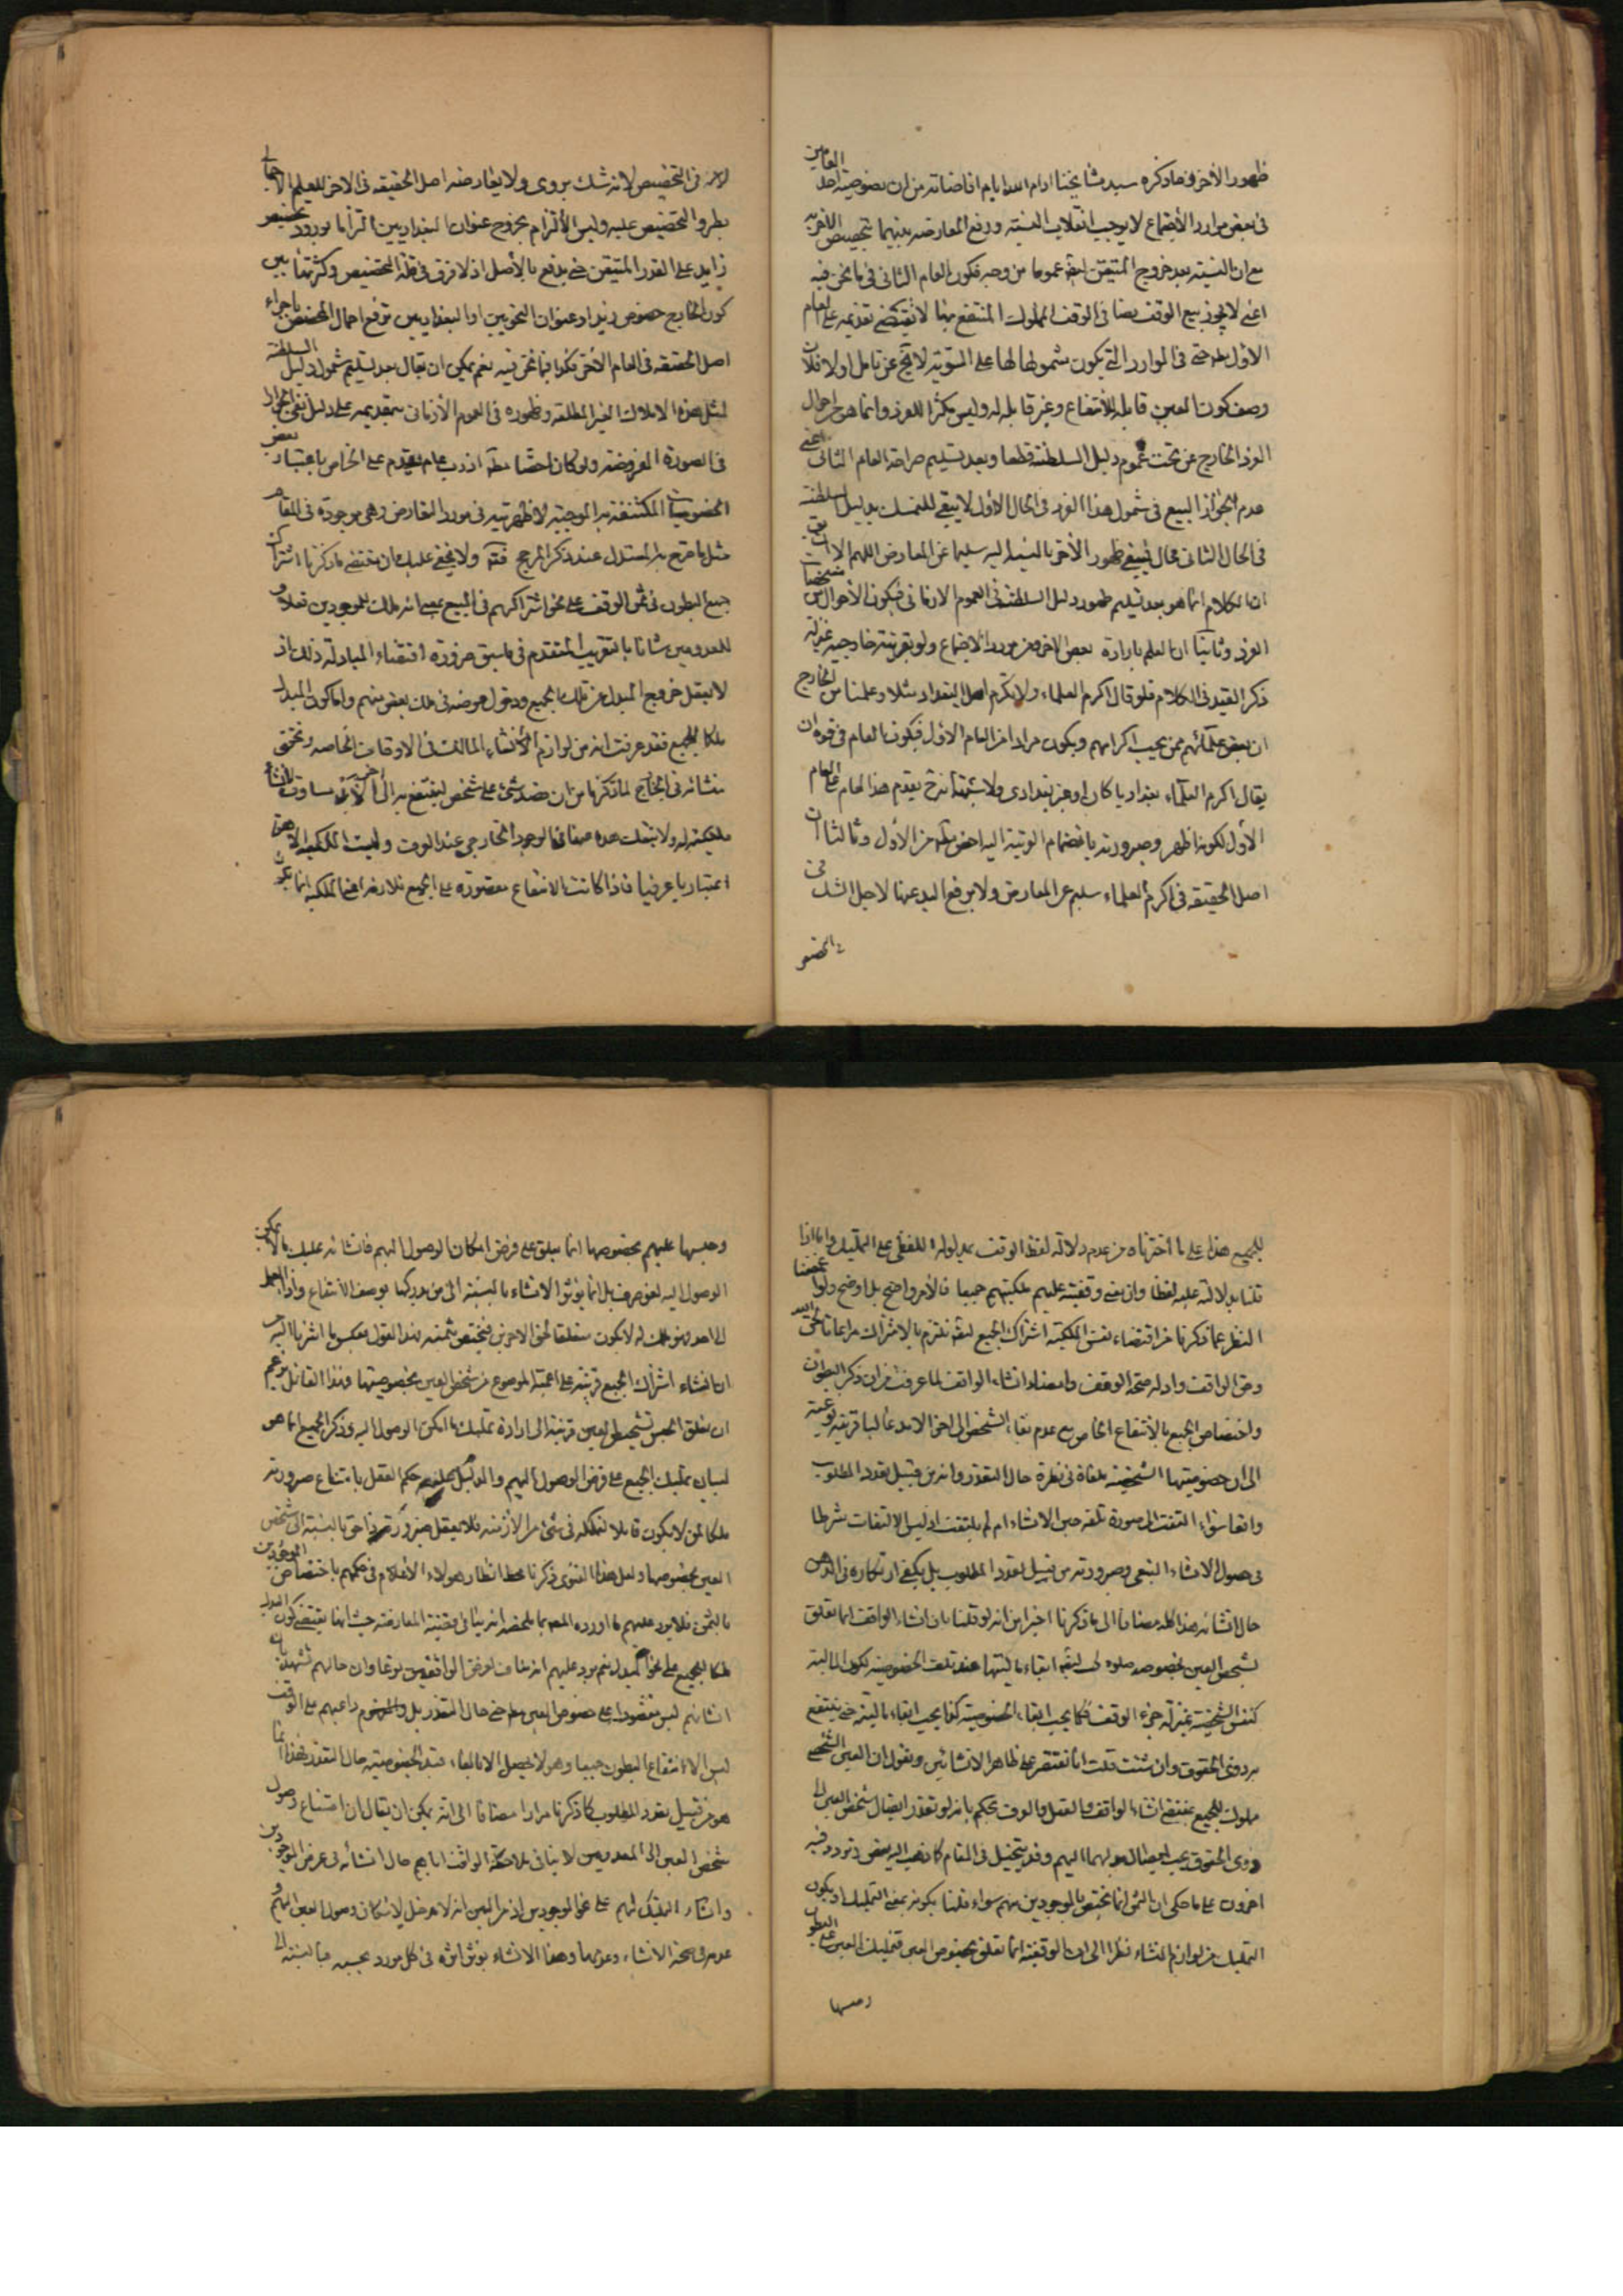 ظهور الأخر وما ذكره سيد مشايخنا ادام الله ايام افاضاته من ان خصوصية احد العامين
في بعض موارد الأجتماع لا يوجب انقلاب النسبة ورفع المعارضة بينهما بتخصيص الاخر به
مع ان النسبة بعد خروج المتيقن ايضا عموما من وجه فكون العام الثاني في ما نحن فيه
اعني لا يجوز بيع الوقف نصا في الوقف المملوك المنتفع بها لا يقتضي تقديمه على العام
الأول حتى في الموارد التي يكون شمولها لها على السوية لا يخ عن تامل اولا فلان
وصف كون العين قابلة للأنتفاع وغير قابلة له وليس مكثرا للفرد وانما هو احوال
الفرد الخارج عن تحت عموم دليل السلطنة قطعا وبعد تسليم صراحة العام الثاني اعني
عدم الجواز البيع في شمول هذا الفرد في الحال الأول لا يبقى للتمسك بدليل السلطنة
في الحال الثاني مجال فيبقى ظهور الأخر بالنسبة اليه سليما عن المعارض اللهم الا
ان الكلام انما هو بعد تسليم ظهور دليل السلطنة في العموم الازماني فيكون الأحوال من مشخصات
الفرد وثانيا ان العلم بارادة بعض الافراد من مورد الاجتماع ولو بقرينة خارجية بمنزلة
ذكر القيد في الكلام فلو قال اكرم العلماء ولا تكرم اهل البغداد مثلا وعلمنا من الخارج
ان بعض علمائهم ممن يجب اكرامهم ويكون مرادا من العام الأول فيكون العام في قوة ان
يقال اكرم العلماء بغداديا كان او غير بغدادي ولا شبهة في تقدم هذا العام على العام
الأول لكونه اظهر وصيرورته بانضمام القرينة اليه اخص مطلقا من الأول وثالثا ان
اصل الحقيقة في اكرم العلماء سليم عن المعارض ولا يرفع اليد عنها لاجل الشك في
التخصيص
في التخصيص لانه شك بدوي ولا يعارضه اصل الحقيقة في الاخر للعلم الاجمالي
بطرو التخصيص عليه وليس الألتزام بخروج عنوان البغداديين التزاما بورود تخصيص
زايد على القدر المتيقن حتى يدفع بالأصل اذ لا فرق في قلة التخصيص وكثرتها بين
كون الخارج خصوص زيد او عنوان النحويين او البغداديين ترفع احتمال التخصيص باجراء
اصل الحقيقة في العام الأخر فكذا فيما نحن فيه نعم يمكن ان يقال بعد تسليم شمول دليل السلطنة
لمثل هذه الاملاك الغير المطلقة وظهوره في العموم الأزماني بتقديمه على دليل نفي الجواز
في الصورة المفروضة ولو كان اخصا مطلقا اذ رب عام يقدم على الخاص باعتبار بعض
الخصوصيات المكتنفة به الموجبة لاظهريته في مورد التعارض وهي موجودة في المقام
مثل ما صرح به المستدل عند ذكر المرجح ولا يخفى عليك ان مقتضى ما ذكرنا اشتراك
جميع البطون في ثمن الوقف على نحو اشتراكهم في المبيع بمعنى انه ملك للموجودين فعلا و
للمعدومين شانا بالتقريب المتقدم في ما سبق ضرورة اقتضاء المبادلة ذلك اذ
لا يعقل خروج المبدل عن ملك الجميع ودخول عوضه في ملك بعض منهم واما كون المبدل
ملكا للجميع فقد عرفت انه من لوازم الأنشاء المالك في الاوقاف الخاصة وتحقق
منشائه في الخارج لما ذكرنا من ان حبس شئ على شخص لينتفع به الى اخر الأبد مساوق لانشاء
ملكيته له ولا يتعقل هذه صفة في الوجود الخارجي عند العرف وليست الملكية الا معنى
اعتباريا عرفيا فاذا كانت الانتفاع مقصورة على الجميع فلا ريب ان الملكية انما تكون
للجميع هذا على ما اخترناه من عدم دلالة لفظ الوقف بمدلوله اللفظي على التمليك واما اذا
قلنا بدلالته عليه لفظا وان معنى وقفيته عليهم ملكيتهم جميعا فالأمر واضح بل اوضح ولو اغمضنا
النظر عما ذكرنا من اقتضاء نفس الملكية اشتراك الجميع لنلتزم بالاشتراك مراعاتا لحق الله
وحق الواقف وادلة صحة الوقف وامضاء انشاء الواقف لما عرفت من ان ذكر البطون
واختصاص الجميع بالأنتفاع الخاص مع عدم بقاء الشخص الى اخر الابد غالبا قرينة نوعية
الى ان خصوصيتها الشخصية ملغاة في نظره حال التعذر وانه من قبيل تعدد المطلوب
واقعا سواء التفت الى صورة تلفه حين الانشاء ام لم يلتفت اذ ليس الالتفات شرطا
في حصول الانشاء التبعي وصيرورته من قبيل تعدد المطلوب بل يكفي ارتكازه في الذهن
حال انشائه هذا كله مضافا الى ما ذكرنا اخيرا من انه لو قلنا بان انشاء الواقف انما تعلق
بشخص العين بخصوصه ابقاء ماليتها عند تلف الخصوصية لكون المالية
كنفس الشخصية بمنزلة جزء الوقف فكما يجب ابقاء الخصوصية كذا يجب ابقاء مالية حتى ينتفع
به ذوي الحقوق وان شئت قلت انا نقتصر على ظاهر الانشائين ونقول ان العين الشخصي
مملوك للجميع بمقتضى انشاء الواقف والعقل والعرف يحكم بانه لو تعذر ايصال شخص العين الى
ذوي الحقوق يجب ايصال بدلهما اليهم وقد يتخيل في المقام كما ذهب اليه بعض وتردد فيه
اخرون على ما حكى ان الثمن انما يختص بالموجودين منهم سواء قلنا بكونه بمعنى التمليك او يكون
التمليك من لوازم انشاء نظرا الى ان الوقفية انما تعلق بخصوص العين فتمليك العين على البطون
وحبسها
وحبسها عليهم بخصوصها انما يتعلق على فرض امكان الوصول اليهم فانشائه تمليك ما لا يمكن
الوصول اليه لغو صرف بل انما يؤثر الانشاء بالنسبة الى من يدركها بوصف الانتفاع واذا
الى احد فهو ملك له لا يكون متعلقا لحق الاخرين فيختص بثمنه فهذا القول بعكس ما اشرنا اليه من
ان انشاء اشتراك الجميع قرينة على اعمية الموضوع من شخص العين بخصوصيتها وهذا القائل يزعم
ان تعلق الحبس بشخص العين قرينة الى ارادة تمليك ما يمكن الوصول اليه وذكر الجميع انما هو
لبيان تمليك الجميع على فرض الوصول اليهم والدليل حكم العقل بامتناع صيرورته
ملكا لمن لا يكون قابلا لتملكه في شئ من الأزمنة فلا يعقل صيرورته ذا حق بالنسبة الى شخص
العين بخصوصها ولعل هذا الذي ذكرنا محط انظار هؤلاء الأعلام في حكمهم باختصاص الموجودين
بالثمن فلا يرد عليهم ما اورده المص بما ملخصه انه ينافي مقتضى المعاوضة حيث انها يقتضي كون البدل
ملكا للجميع على نحو المبدل نعم يرد عليهم انه مناف لغرض الواقفين نوعا وان حالهم تشهد بان
انشائهم ليس مقصورا على خصوص العين حتى حال التعذر بل داعيهم على الوقف
ليس الا انتفاع البطون جميعا وهو لا يحصل الا بالغاء قيد الخصوصية حال التعذر فهذا انما
هو من قبيل تعدد المطلوب كما ذكرنا مرارا مضافا الى انه يمكن ان يقال ان امتناع وصول
شخص العين الى المعدومين لا ينافي ملاحظة الواقف اياهم حال انشائه في عرض الموجودين
وانشاء التمليك لهم على نحو الموجودين اذ من البين انه لا مدخل لامكان وصول العين اليهم و
عدمه في صحة الانشاء وعدمها وهذا الانشاء يؤثر اثره في كل مورد بحسبه فبالنسبة الى